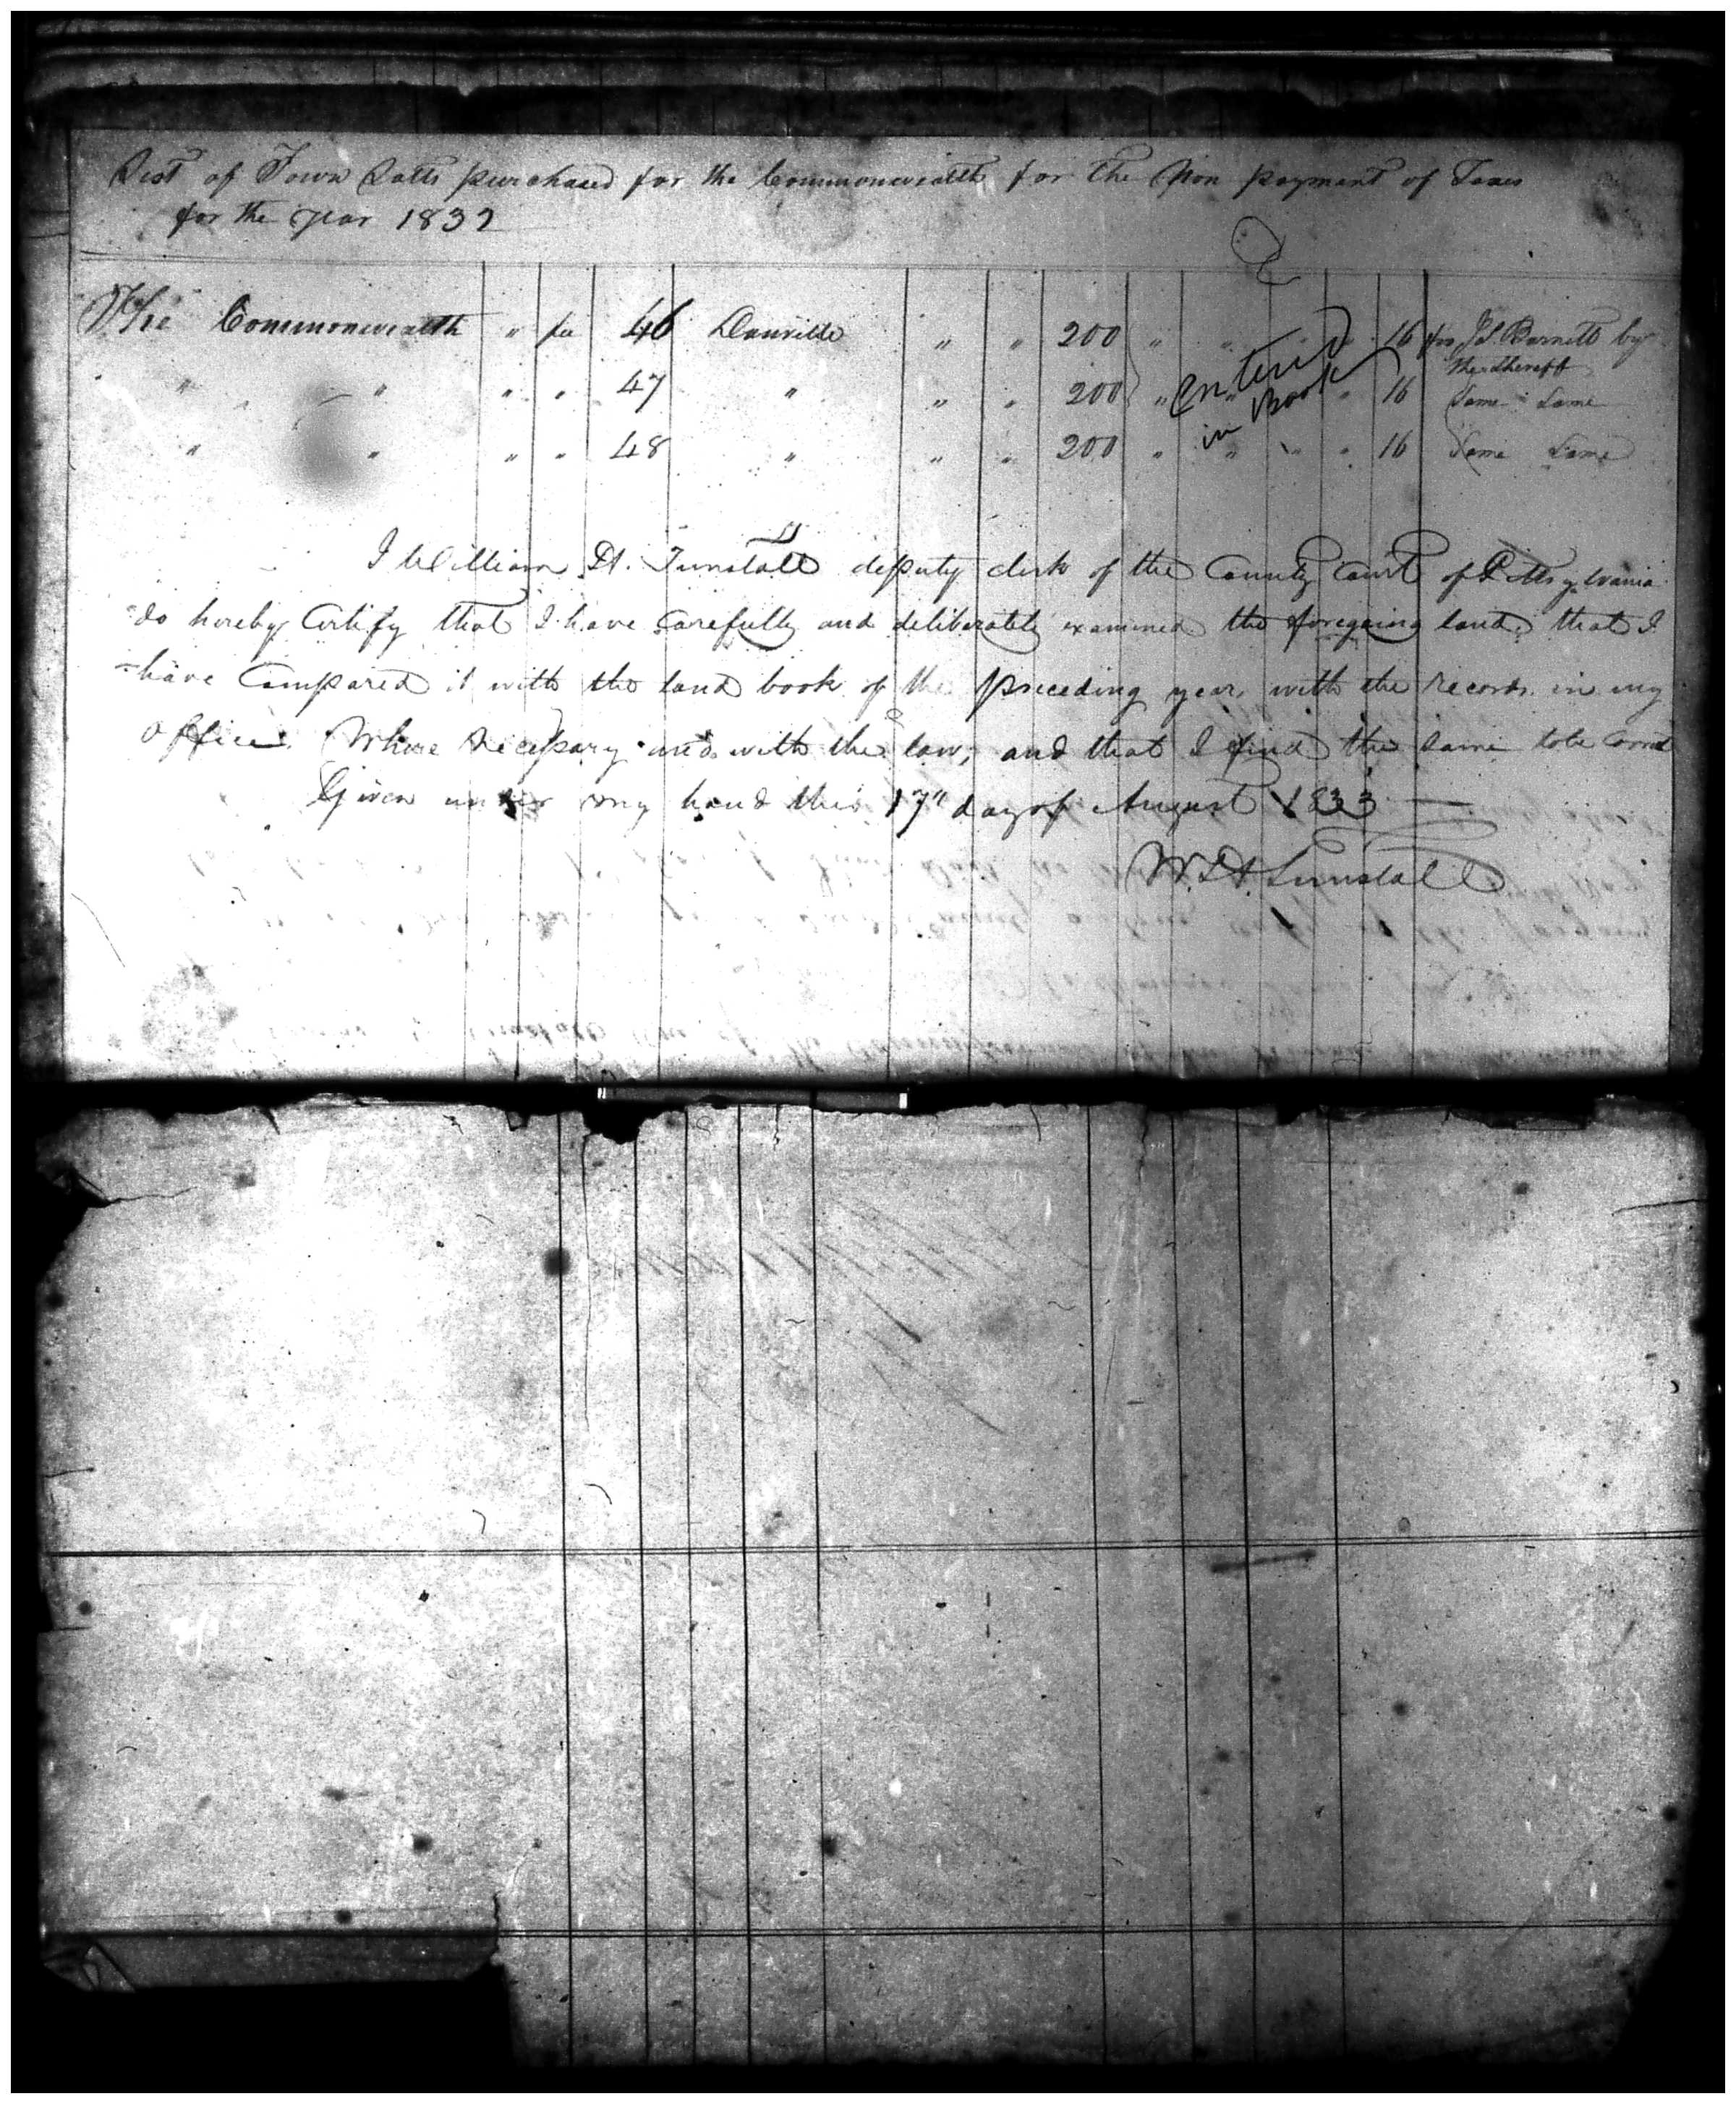 List of Town Lotts purchased for the Commonwealth for the Non payment of Taxes
for the year 1832
The Commonwealth " fee 46 Danville " " 200 " " " " 16 for J S Barnett by the sheriff
" " " " 47 " " " 200 " " " 16 Same Same
" " " " 48 " " " 200 " " " " 16 Same Same
Entered
in Book
I William H. Tunstall deputy clerk of the County Court of Pittsylvania
do hereby Certify that I have carefully and deliberately examined the foregoing land that I
have Compared it with the land book of the preceding year, with the records in my
office. Where necessary and with the law, and that I find the same to be correct
Given under my hand this 17" day of August 1833
W. H. Tunstall